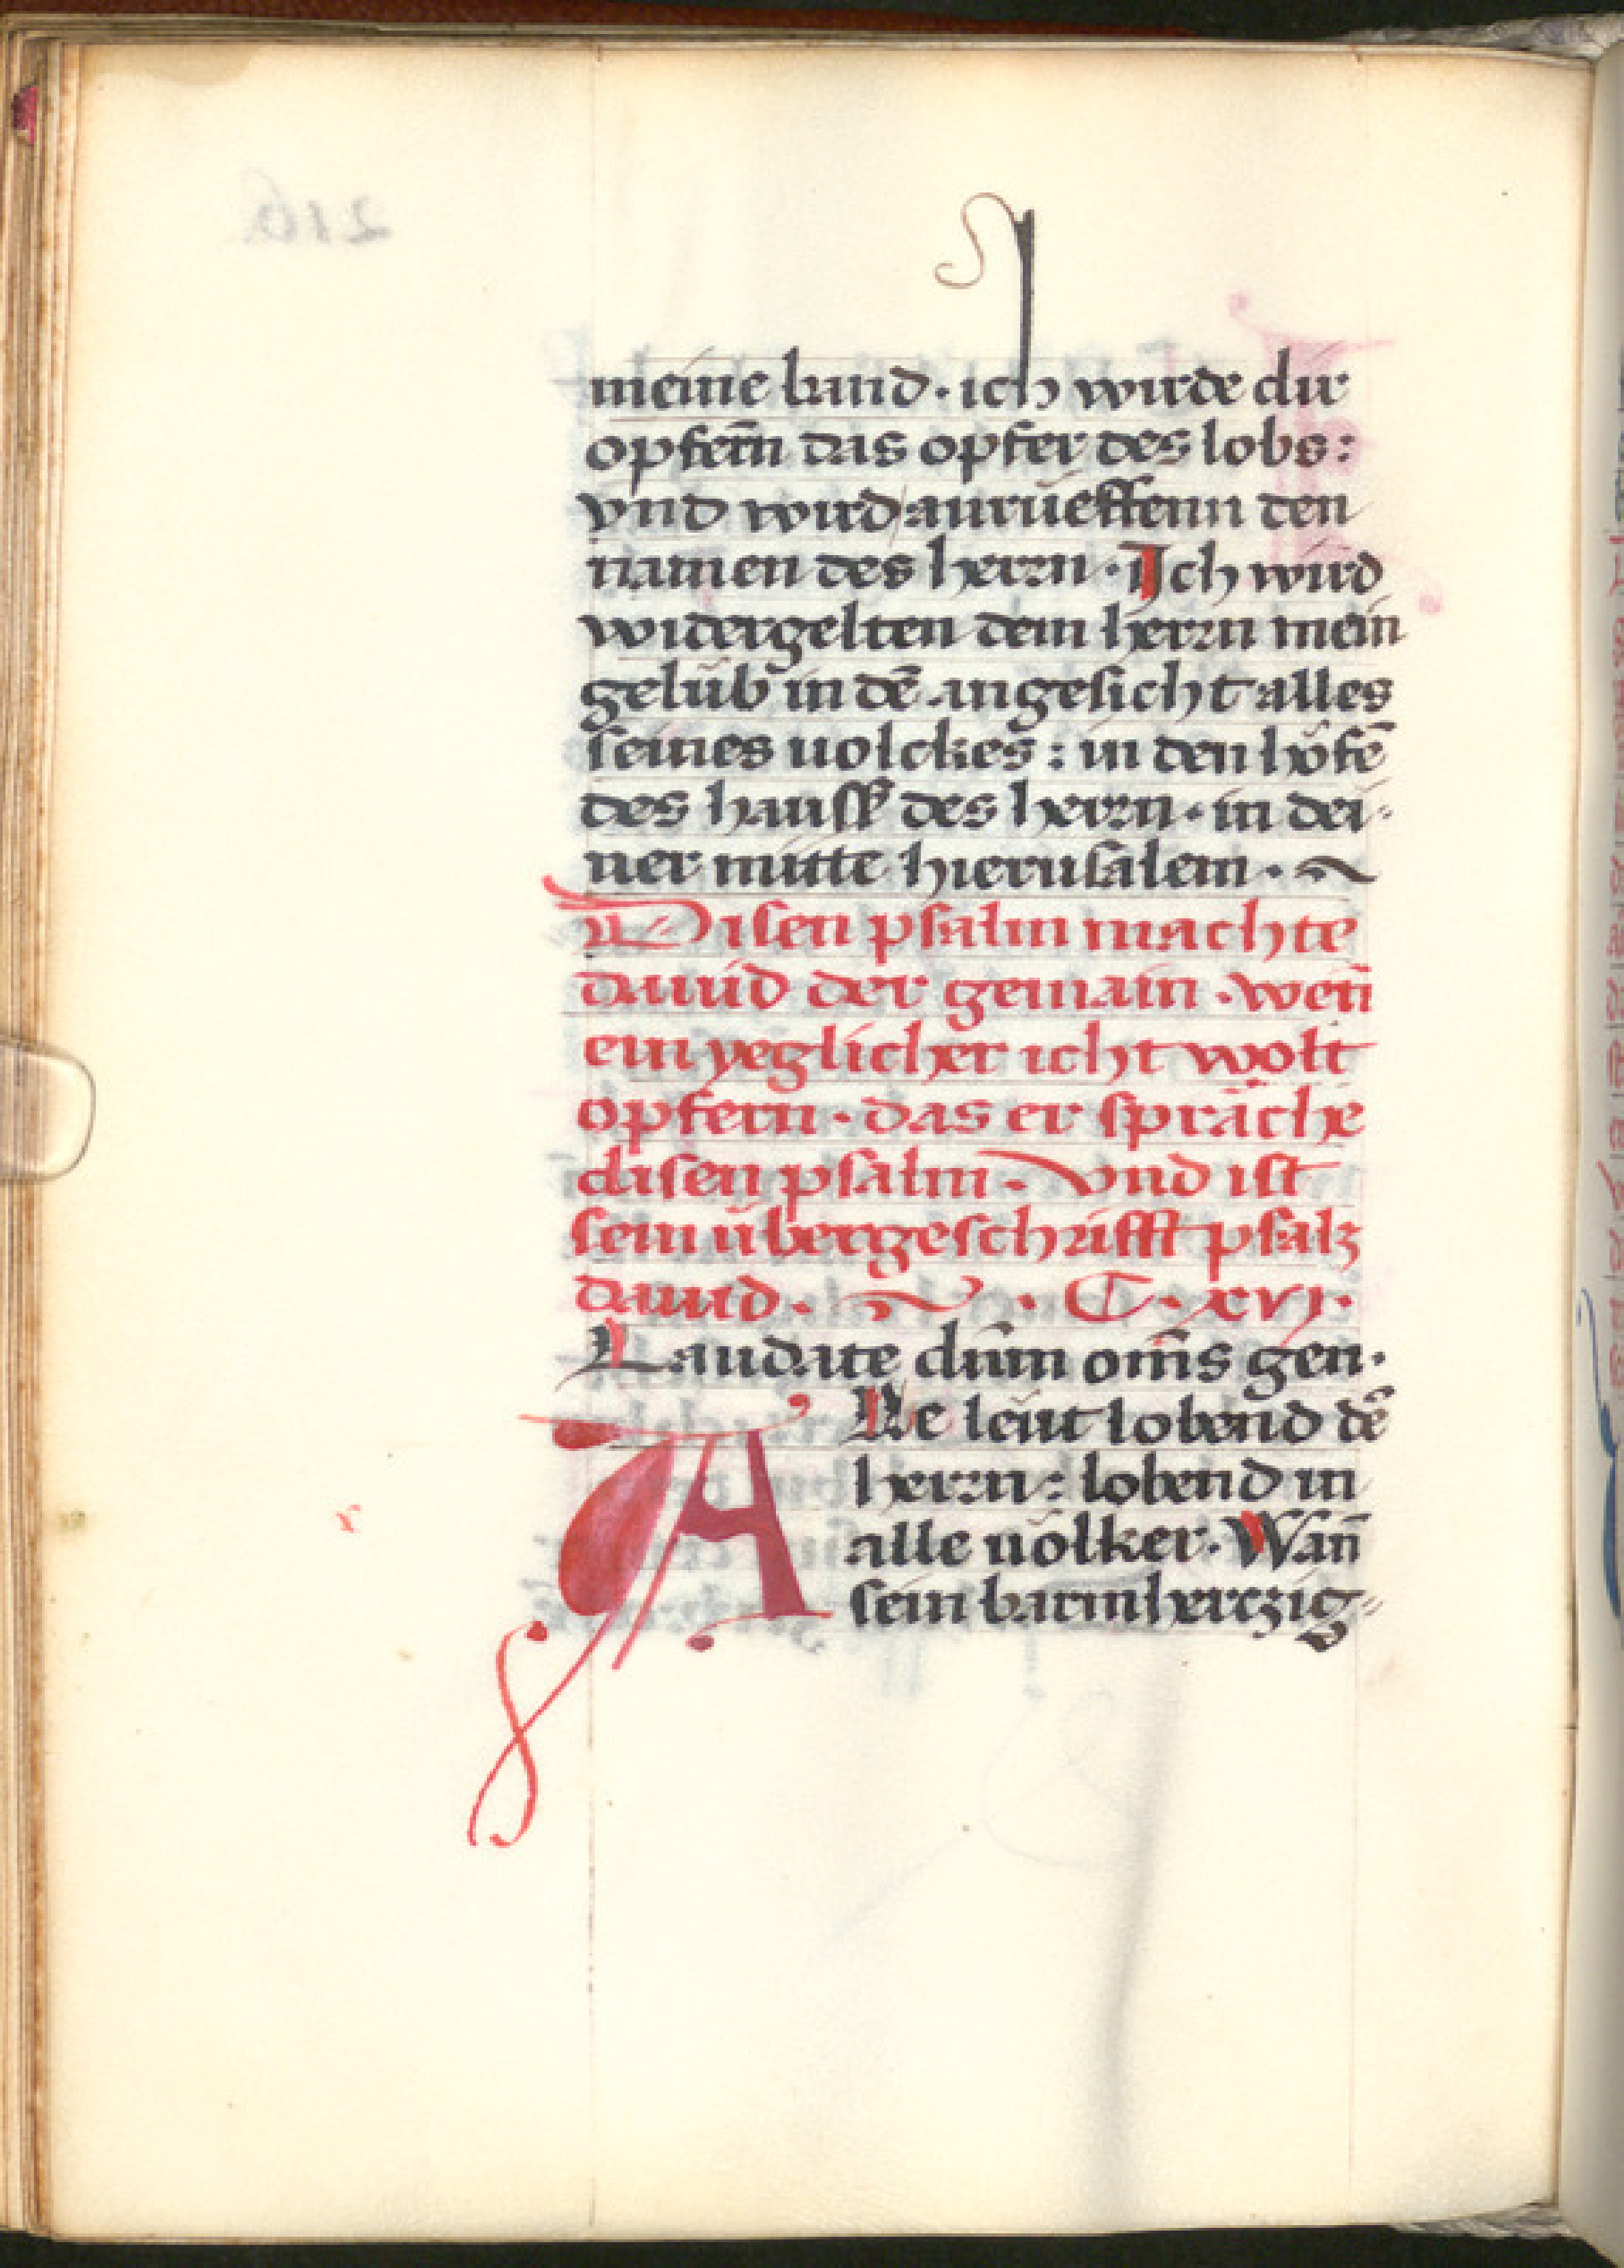 meine band · ich wirde dir
opfern̄ das opfer des lobs:
vnd wird anrüeffenn den
namen des herrn · Ich wird
widergelten dem herrn mein
gelüb in dē angesicht alles
seines uolckes: in den höfē
des hauss des herrn · in dei-
ner mitte hierusalem ·
Disen psalm machte
dauid der gemain · wen̄
ein yeglicher icht wolt
opfern · das er spräche
disen psalm · vnd ist
sein übergeschrifft psalz
dauid · C · xvj ·
Laudate dn̄m om̄s gen ·
ALle leüt lobend dē
herrn: lobend in
alle uölker · Wan̄
sein barmherczig-